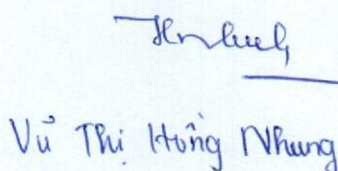 Vũ Thị Hồng Nhung